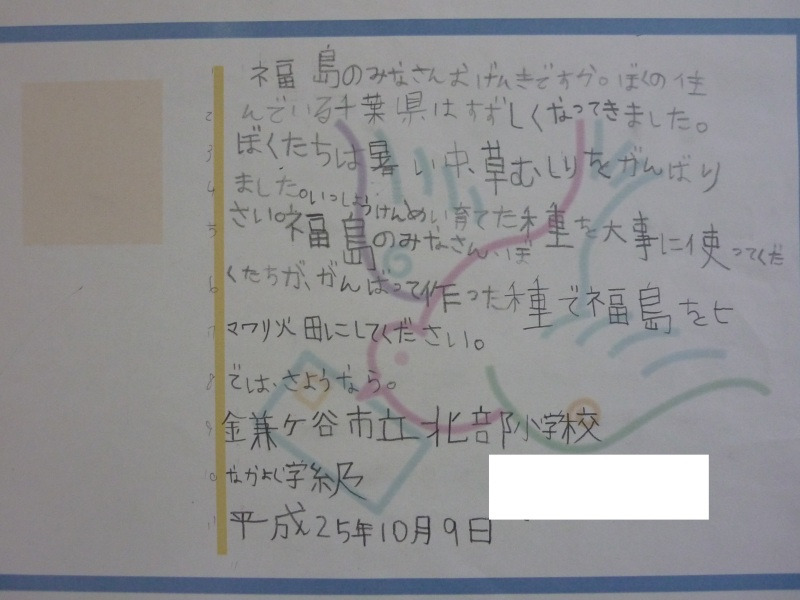 福島のみなさんおげんきですか。ぼくの住
んでいる千葉県はすずしくなってきました。
ぼくたちは暑い中、草むしりをがんばり
ました。いっしょうけんめい育てた種を大事に使ってくだ
さい。福島のみなさん、ぼ
くたちが、がんばって作った種で福島をヒ
マワリ火田にしてください。
では、さようなら。
金兼ケ谷市立北部小学校
なかよく学級
平成25年10月9日